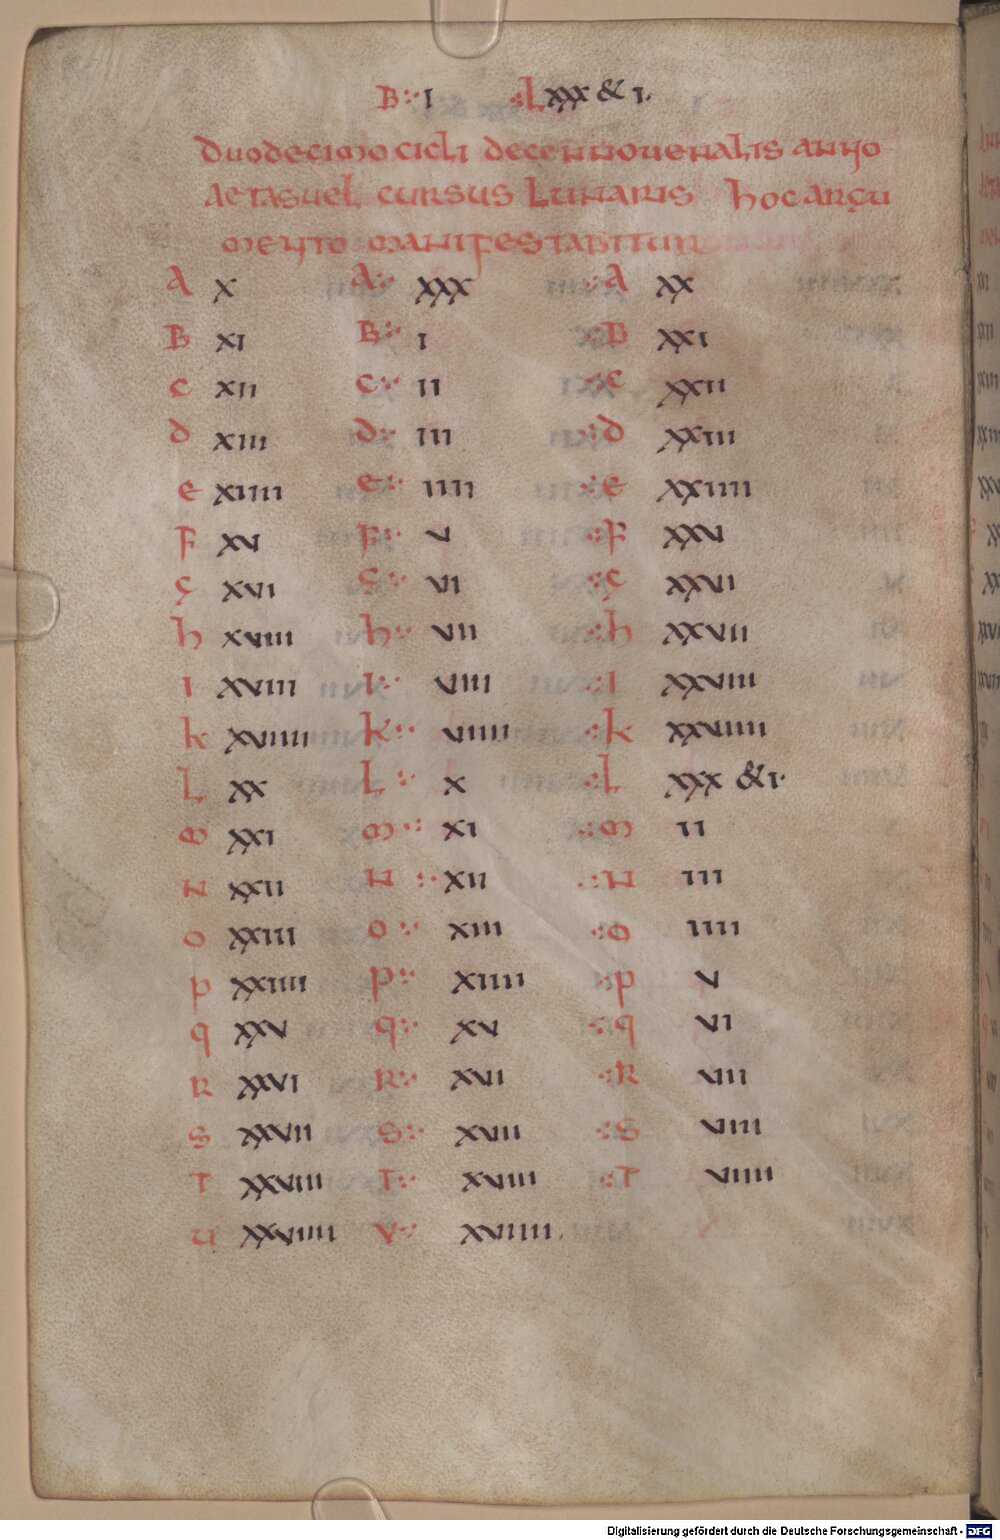 B:· I ·:L XXX & I.
duodecimo cicli decennouenalis anno
aetas uel cursus Lunaris hoc argu
mento manifestabitur
A X A:· XXX ·:A XX
B XI B:· I ·:B XXI
c XII c:· II ·:c XXII
d XIII d:· III ·:d XXIII
e XIIII e:· IIII ·:e XXIIII
F XV F:· V ·:F XXV
G XVI G:· VI ·:G XXVI
h XVIIII h:· VII ·:h XXVII
I XVIIII I:· VIII ·:I XXVIII
k XVIIIII k:· VIIII ·:k XXVIIII
L XX L:· X ·:L XXX & I·
m XXI m:· XI ·:m II
N XXII N:· XII ·:N III
o XXIII o:· XIII ·:o IIII
p XXIIII p:· XIIII ·:p V
q XXV q:· XV ·:q VI
R XXVI R:· XVI ·:R VII
S XXVII S:· XVII ·:S VIII
T XXVIII T:· XVIII ·:T VIIII
u XXVIIII V:· XVIIII.
Digitalisierung gefördert durch die Deutsche Forschungsgemeinschaft - DFG